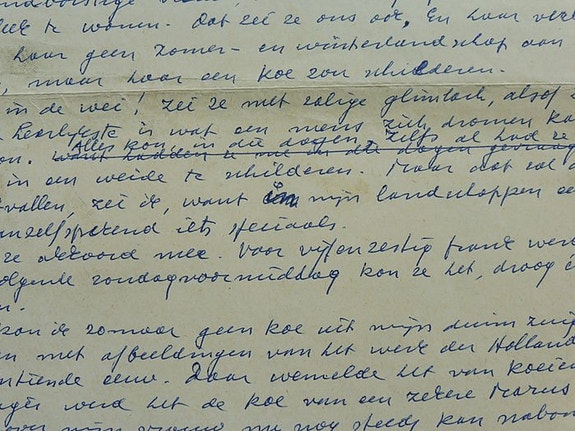 te wonen. Dat zei ze ons ook. En haar
haar geen zomer- en winterlandschap aan
, maar haar een koe zou schilderen.
in de wei! zei ze met zalige glimlach, alsof
heerlijkste is wat een mens zich dromen
Alles kon in die dagen, zelfs al had ze
in een weide te schilderen. Maar dat zal
vallen, zei ik, want in mijn landschappen
anzelfsprekend iets speciaals.
ze akkoord mee. Voor vijfenzestig frank
olgende zondagvoormiddag kon ze het, droog
n.
kon ik zomaar geen koe uit mijn duim
en met afbeeldingen van het werk der Holland
ntiende eeuw. Daar wemelde het van koeien
werd het de koe van een zekere
mijn vrouw me nog steeds kan